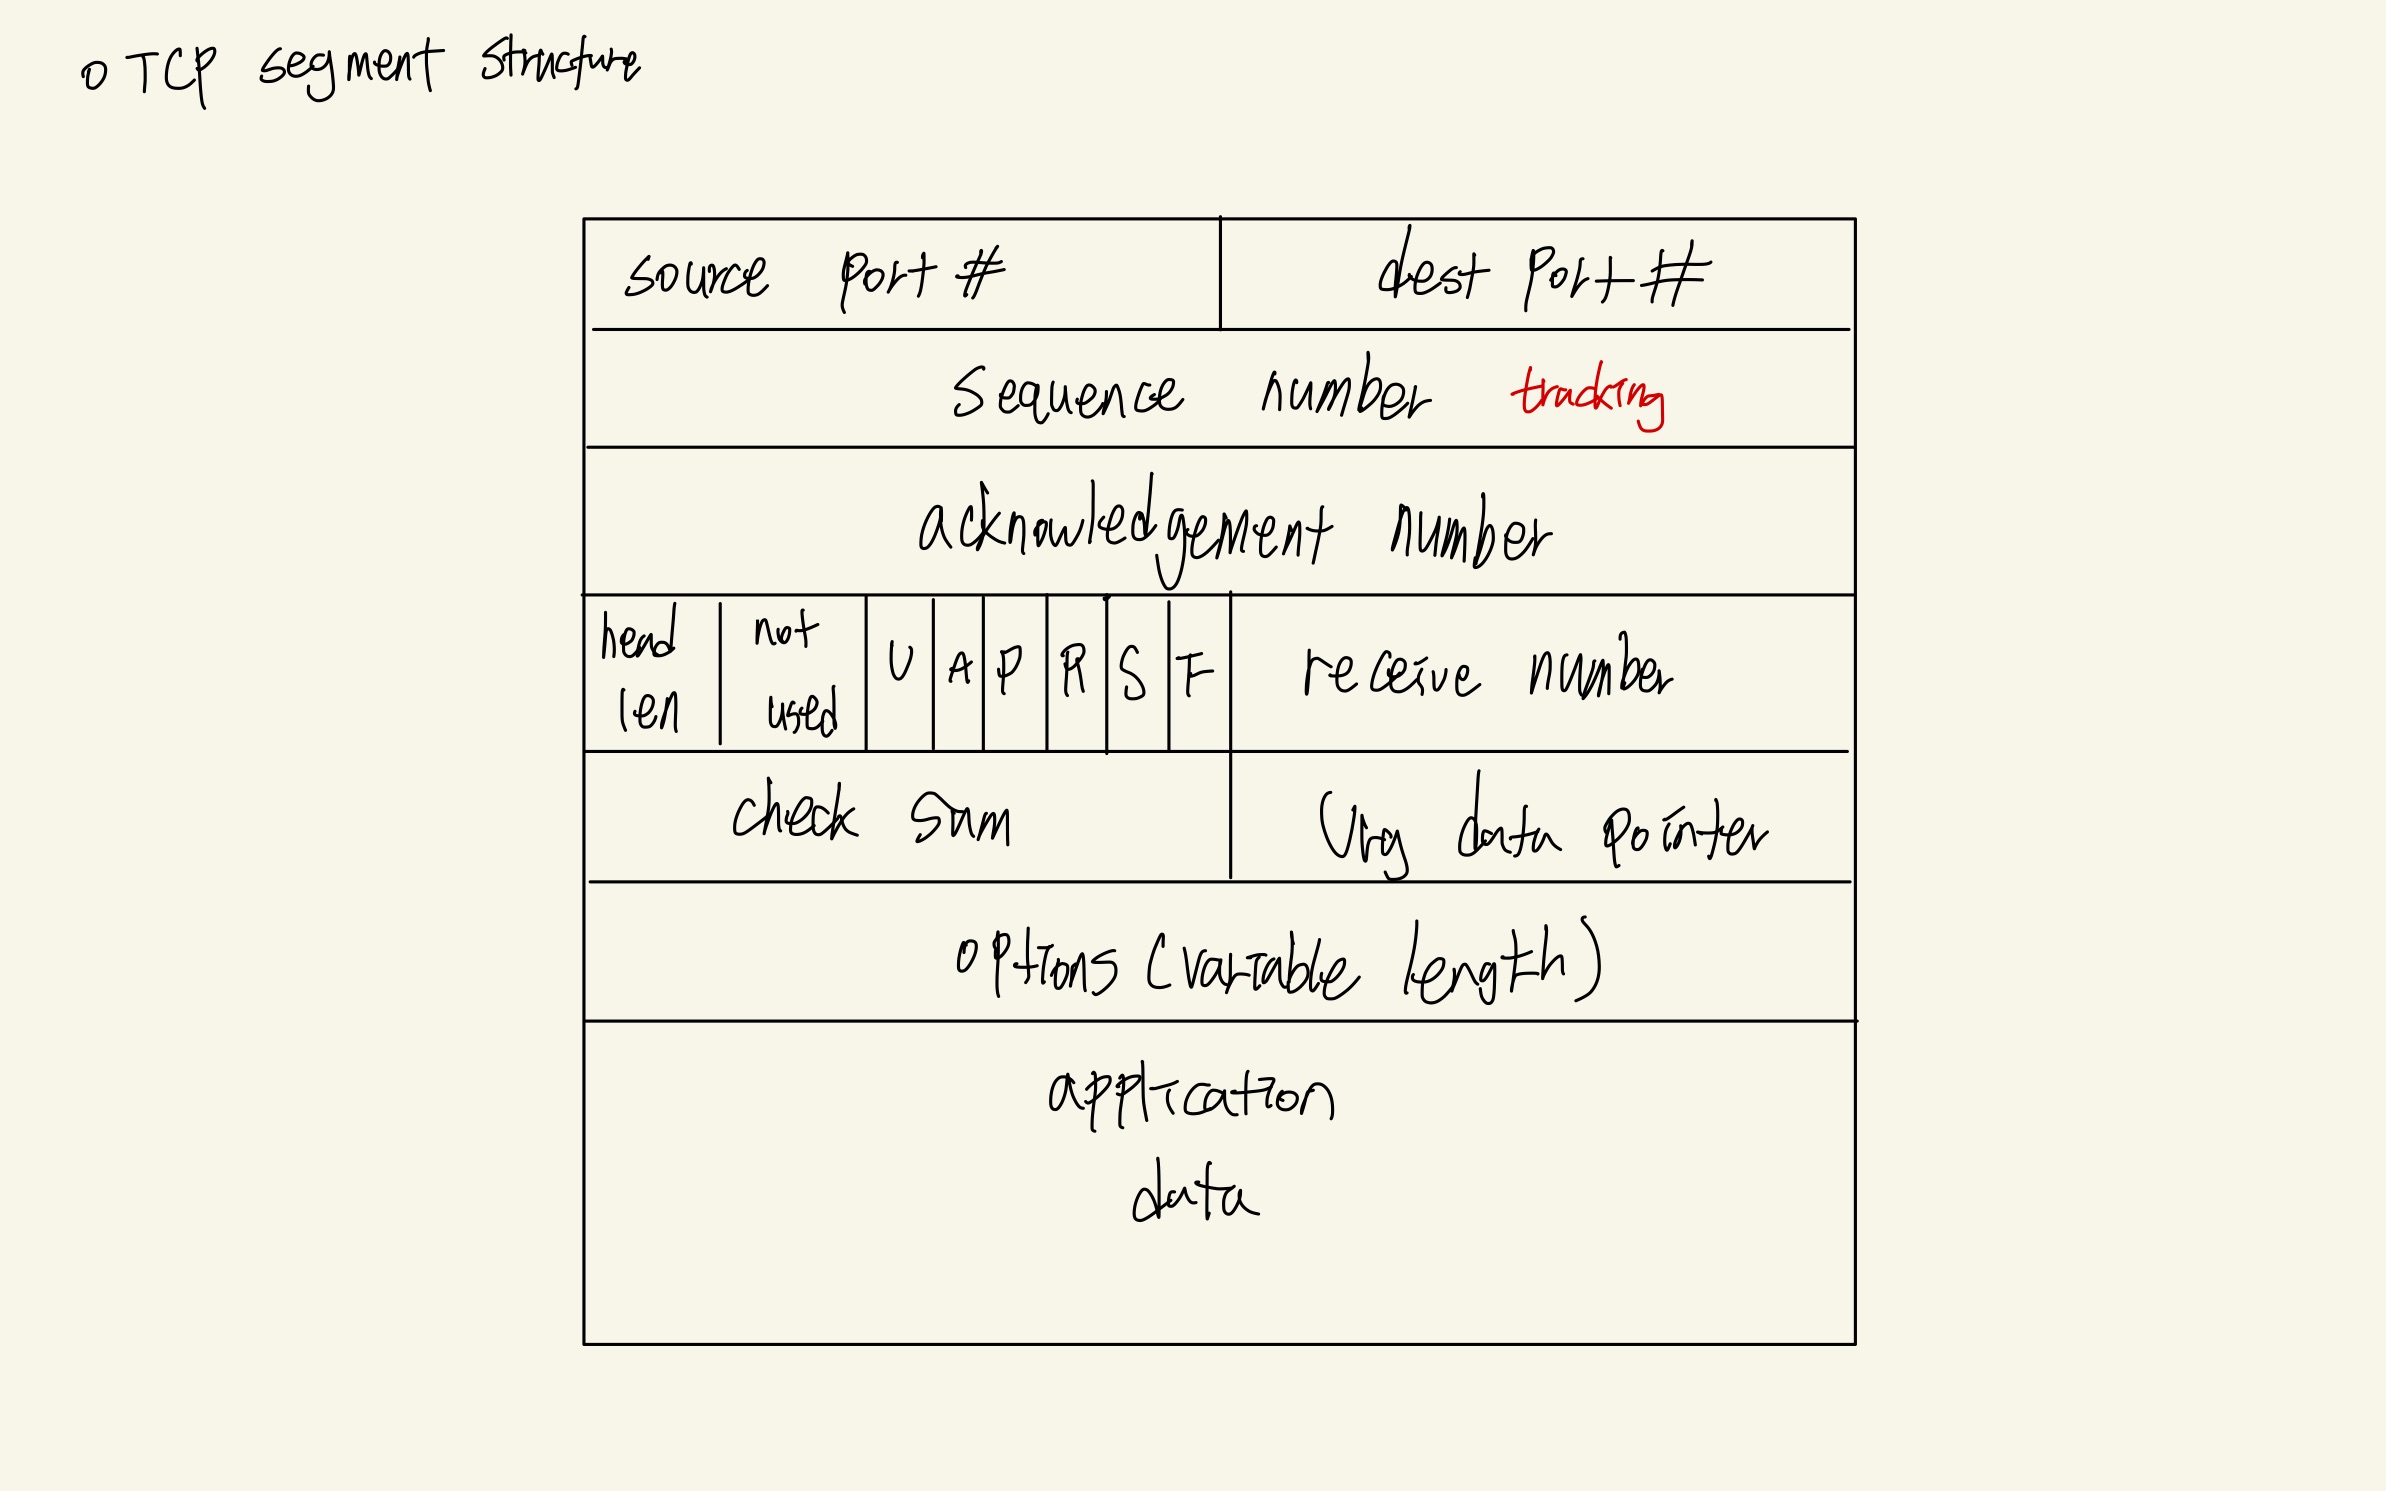 o TCP segment structure
source port # dest port #
sequence number tracking
acknowledgement number
head len not used U A P R S F receive number
check sum Urg data pointer
options (variable length)
application
data